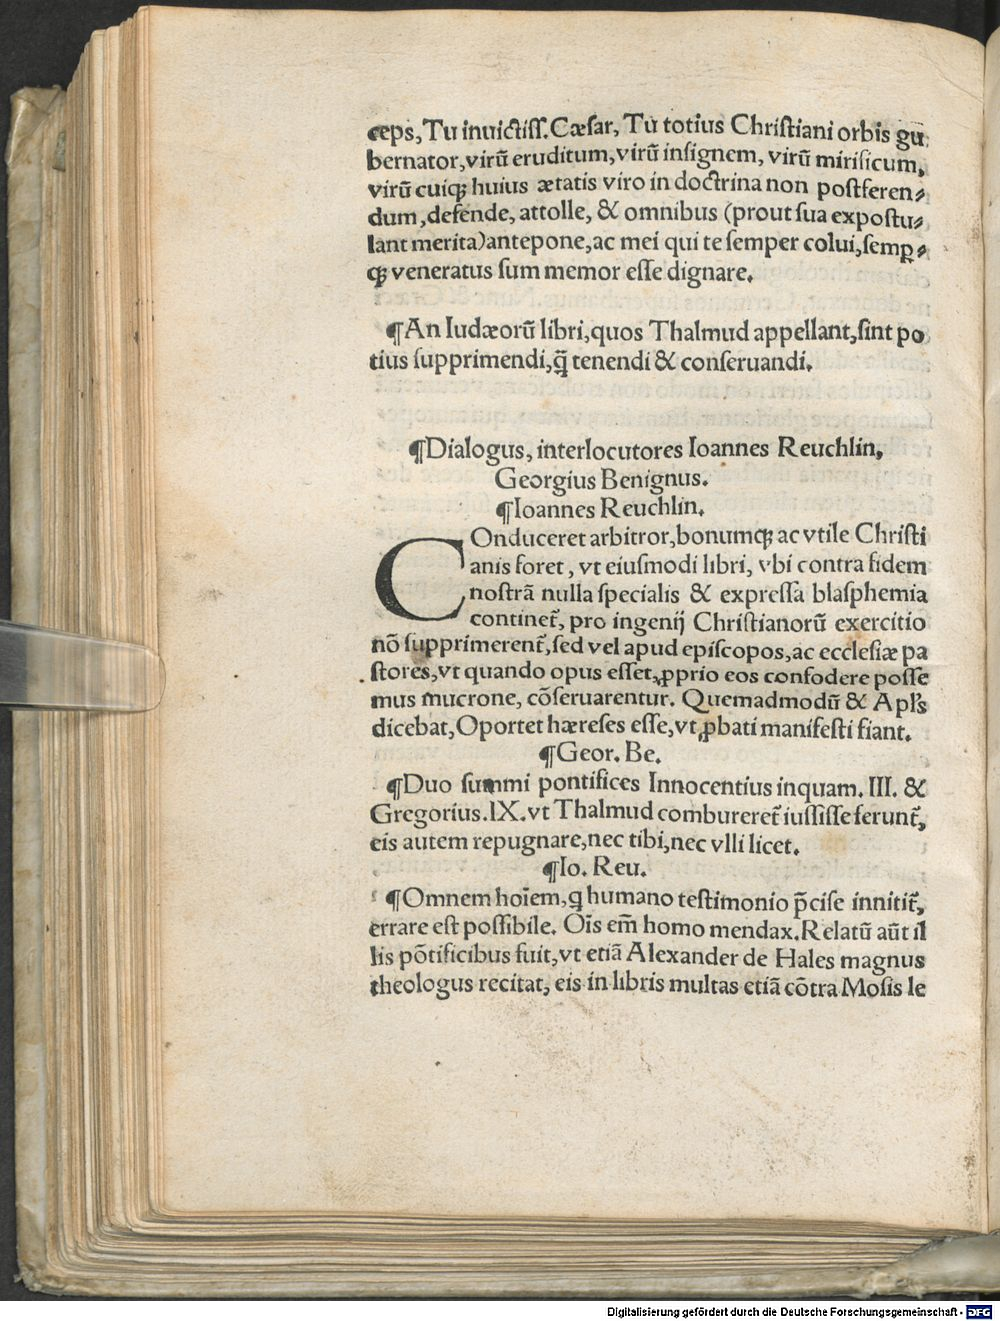 ceps, Tu inuictiſſ. Cæſar, Tu totius Chriſtiani orbis gu
bernator, virū eruditum, virū inſignem, virū mirificum,
virū cuiqꝫ huius ætatis viro in doctrina non poſtferen⸗
dum, defende, attolle, & omnibus (prout ſua expoſtu⸗
lant merita) antepone, ac mei qui te ſemper colui, ſemꝑ⸗
qꝫ veneratus ſum memor eſſe dignare.
¶An Iudæorū libri, quos Thalmud appellant, ſint po
tius ſupprimendi, q̄ꝫ tenendi & conſeruandi.
¶Dialogus, interlocutores Ioannes Reuchlin,
Georgius Benignus.
¶Ioannes Reuchlin.
COnduceret arbitror, bonumqꝫ ac vtile Chriſti
anis foret, vt eiuſmodi libri, vbi contra fidem
noſtrā nulla ſpecialis & expreſſa blaſphemia
continet᷑, pro ingenij Chriſtianorū exercitio
nō ſupprimerent᷑, ſed vel apud epiſcopos, ac eccleſiæ pa
ſtores, vt quando opus eſſet, ꝓprio eos confodere poſſe
mus mucrone, cōſeruarentur. Quemadmodū & Apl's
dicebat, Oportet hæreſes eſſe, vt ꝓbati manifeſti fiant.
¶Geor. Be.
¶Duo ſummi pontifices Innocentius inquam. III. &
Gregorius. IX. vt Thalmud combureret᷑ iuſſiſſe ferunt᷑,
eis autem repugnare, nec tibi, nec vlli licet.
¶Io. Reu.
¶Omnem hoīem, ꝗ humano teſtimonio p̄ciſe innitit᷑,
errare eſt poſſibile. Oīs em̄ homo mendax. Relatū aūt il
lis pōtificibus fuit, vt etiā Alexander de Hales magnus
theologus recitat, eis in libris multas etiā cōtra Moſis le
Digitalisierung gefördert durch die Deutsche Forschungsgemeinschaft - DFG